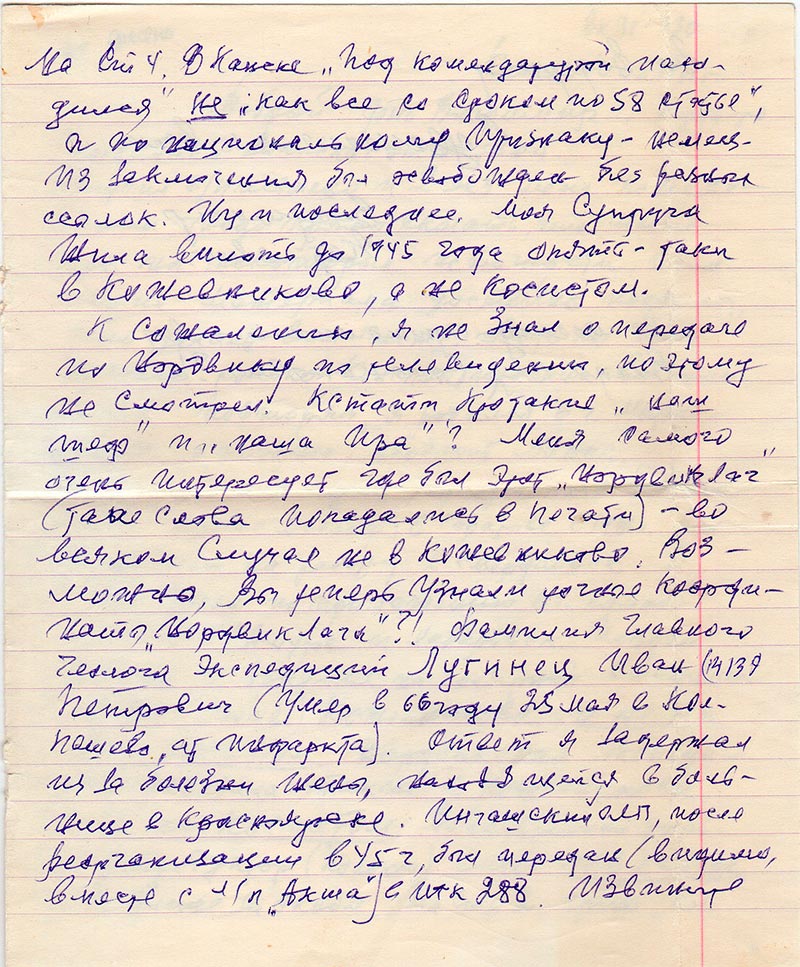 На Стр 4. В Канске „Под комендатурой нахо-
дился" не „как все со сроком по 58 статье",
а по национальному признаку - немец.
Из заключения был освобожден без разных
ссылок. Ну и последнее. Моя супруга
жила вплоть до 1945 года опять-таки
в Кожевниково, а не Косистом.
К сожалению, я не знал о передаче
по Нордвику по телевидению, поэтому
не смотрел. Кстати кто такие „наш
шеф" и „наша Ира"? Меня самого
очень интересует где был этот „Нордвиклаг"
(такие слова попадались в печати) - во
всяком случае не в Кожевниково. Воз-
можно, Вы теперь узнали точные коорди-
наты „Нордвиклага"?! Фамилия главного
геолога экспедиции Лугинец Иван
Петрович (умер в 66 году 25 мая в Кол-
пашево, от инфаркта). Ответ я задержал
из за болезни жены, находящейся в боль-
нице в Красноярске. Ингашский ЛП, после
реорганизации в 45 г, был передан (видимо,
вместе с л/п „Акша") в ИТК 288. Извините